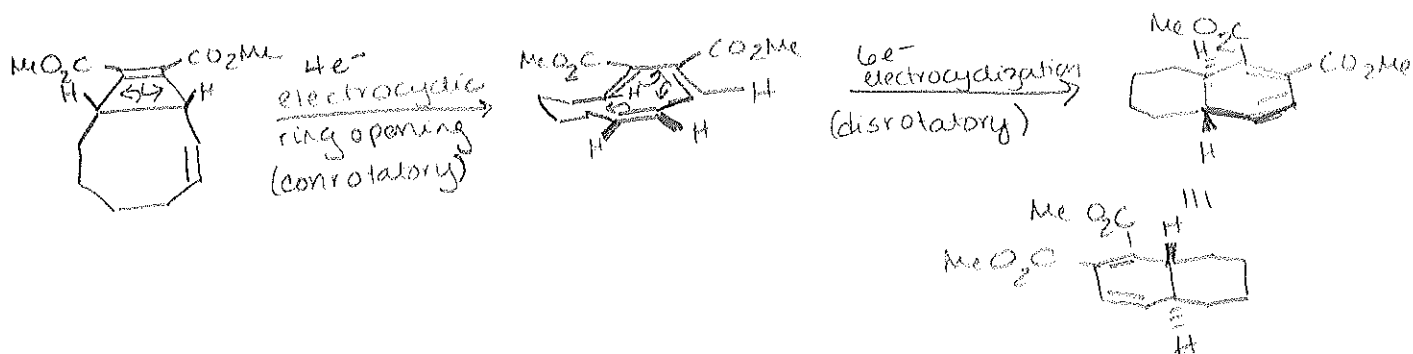 MeO₂C CO₂Me
H H
4e⁻
electrocyclic
ring opening
(conrotatory)
MeO₂C CO₂Me
H
H
H H
6e⁻
electrocyclization
(disrotatory)
MeO₂C
H
CO₂Me
H
III
MeO₂C
H
MeO₂C
H